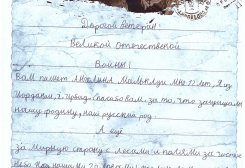 Дорогой ветеран!
Великой Отечественной
Войны!
Вам пишет Мне 12 лет, я из
Иордании, г. Ирбид. Спасибо Вам, за то, что защищали
нашу родину, наш русский род.
А ещё
за мирную страну с лесами и полями за чистое
небо над нашими